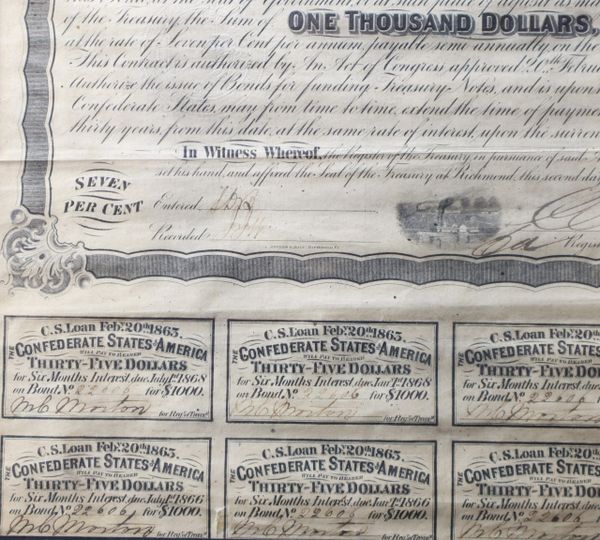 of the Treasury, the Sum of ONE THOUSAND DOLLARS,
at the rate of Seven per Cent per annum, payable semi annually, on the
This Contract is authorized by An Act of Congress approved 20th Febru
Authorize the issue of Bonds for funding Treasury Notes, and is upon
Confederate States, may from time to time, extend the time of paymen
thirty years, from this date, at the same rate of interest, upon the surren
In Witness Whereof, the Register of the Treasury in pursuance of said
set his hand, and affixed the Seal of the Treasury at Richmond, this second day
SEVEN
PER CENT
Entered
Recorded
Regis
C.S. Loan Feby. 20th 1863. C.S. Loan Feby. 20th 1863. C.S. Loan Feby. 20th
THE CONFEDERATE STATES OF AMERICA THE CONFEDERATE STATES OF AMERICA THE CONFEDERATE STATES
WILL PAY TO BEARER WILL PAY TO BEARER WILL PAY TO BEARER
THIRTY-FIVE DOLLARS THIRTY-FIVE DOLLARS THIRTY-FIVE DOL
for Six Months Interest, due July 1st 1868 for Six Months Interest, due Jan'y 1st 1868 for Six Months Interest, due
on Bond, No. 22606 for $1000. on Bond, No. 22606 for $1000. on Bond, No. 22606
M C Morton for Reg. of Treasy. M C Morton for Reg. of Treasy.
C.S. Loan Feby. 20th 1863. C.S. Loan Feby. 20th 1863. C.S. Loan Feby. 20th
THE CONFEDERATE STATES OF AMERICA THE CONFEDERATE STATES OF AMERICA THE CONFEDERATE STATES
WILL PAY TO BEARER WILL PAY TO BEARER WILL PAY TO BEARER
THIRTY-FIVE DOLLARS THIRTY-FIVE DOLLARS THIRTY-FIVE DOL
for Six Months Interest, due July 1st 1866 for Six Months Interest, due Jan'y 1st 1866 for Six Months Interest, due
on Bond, No. 22606 for $1000. on Bond, No. 22606 for $1000. on Bond, No. 22606
M C Morton for Reg. of Treasy. M C Morton for Reg. of Treasy.